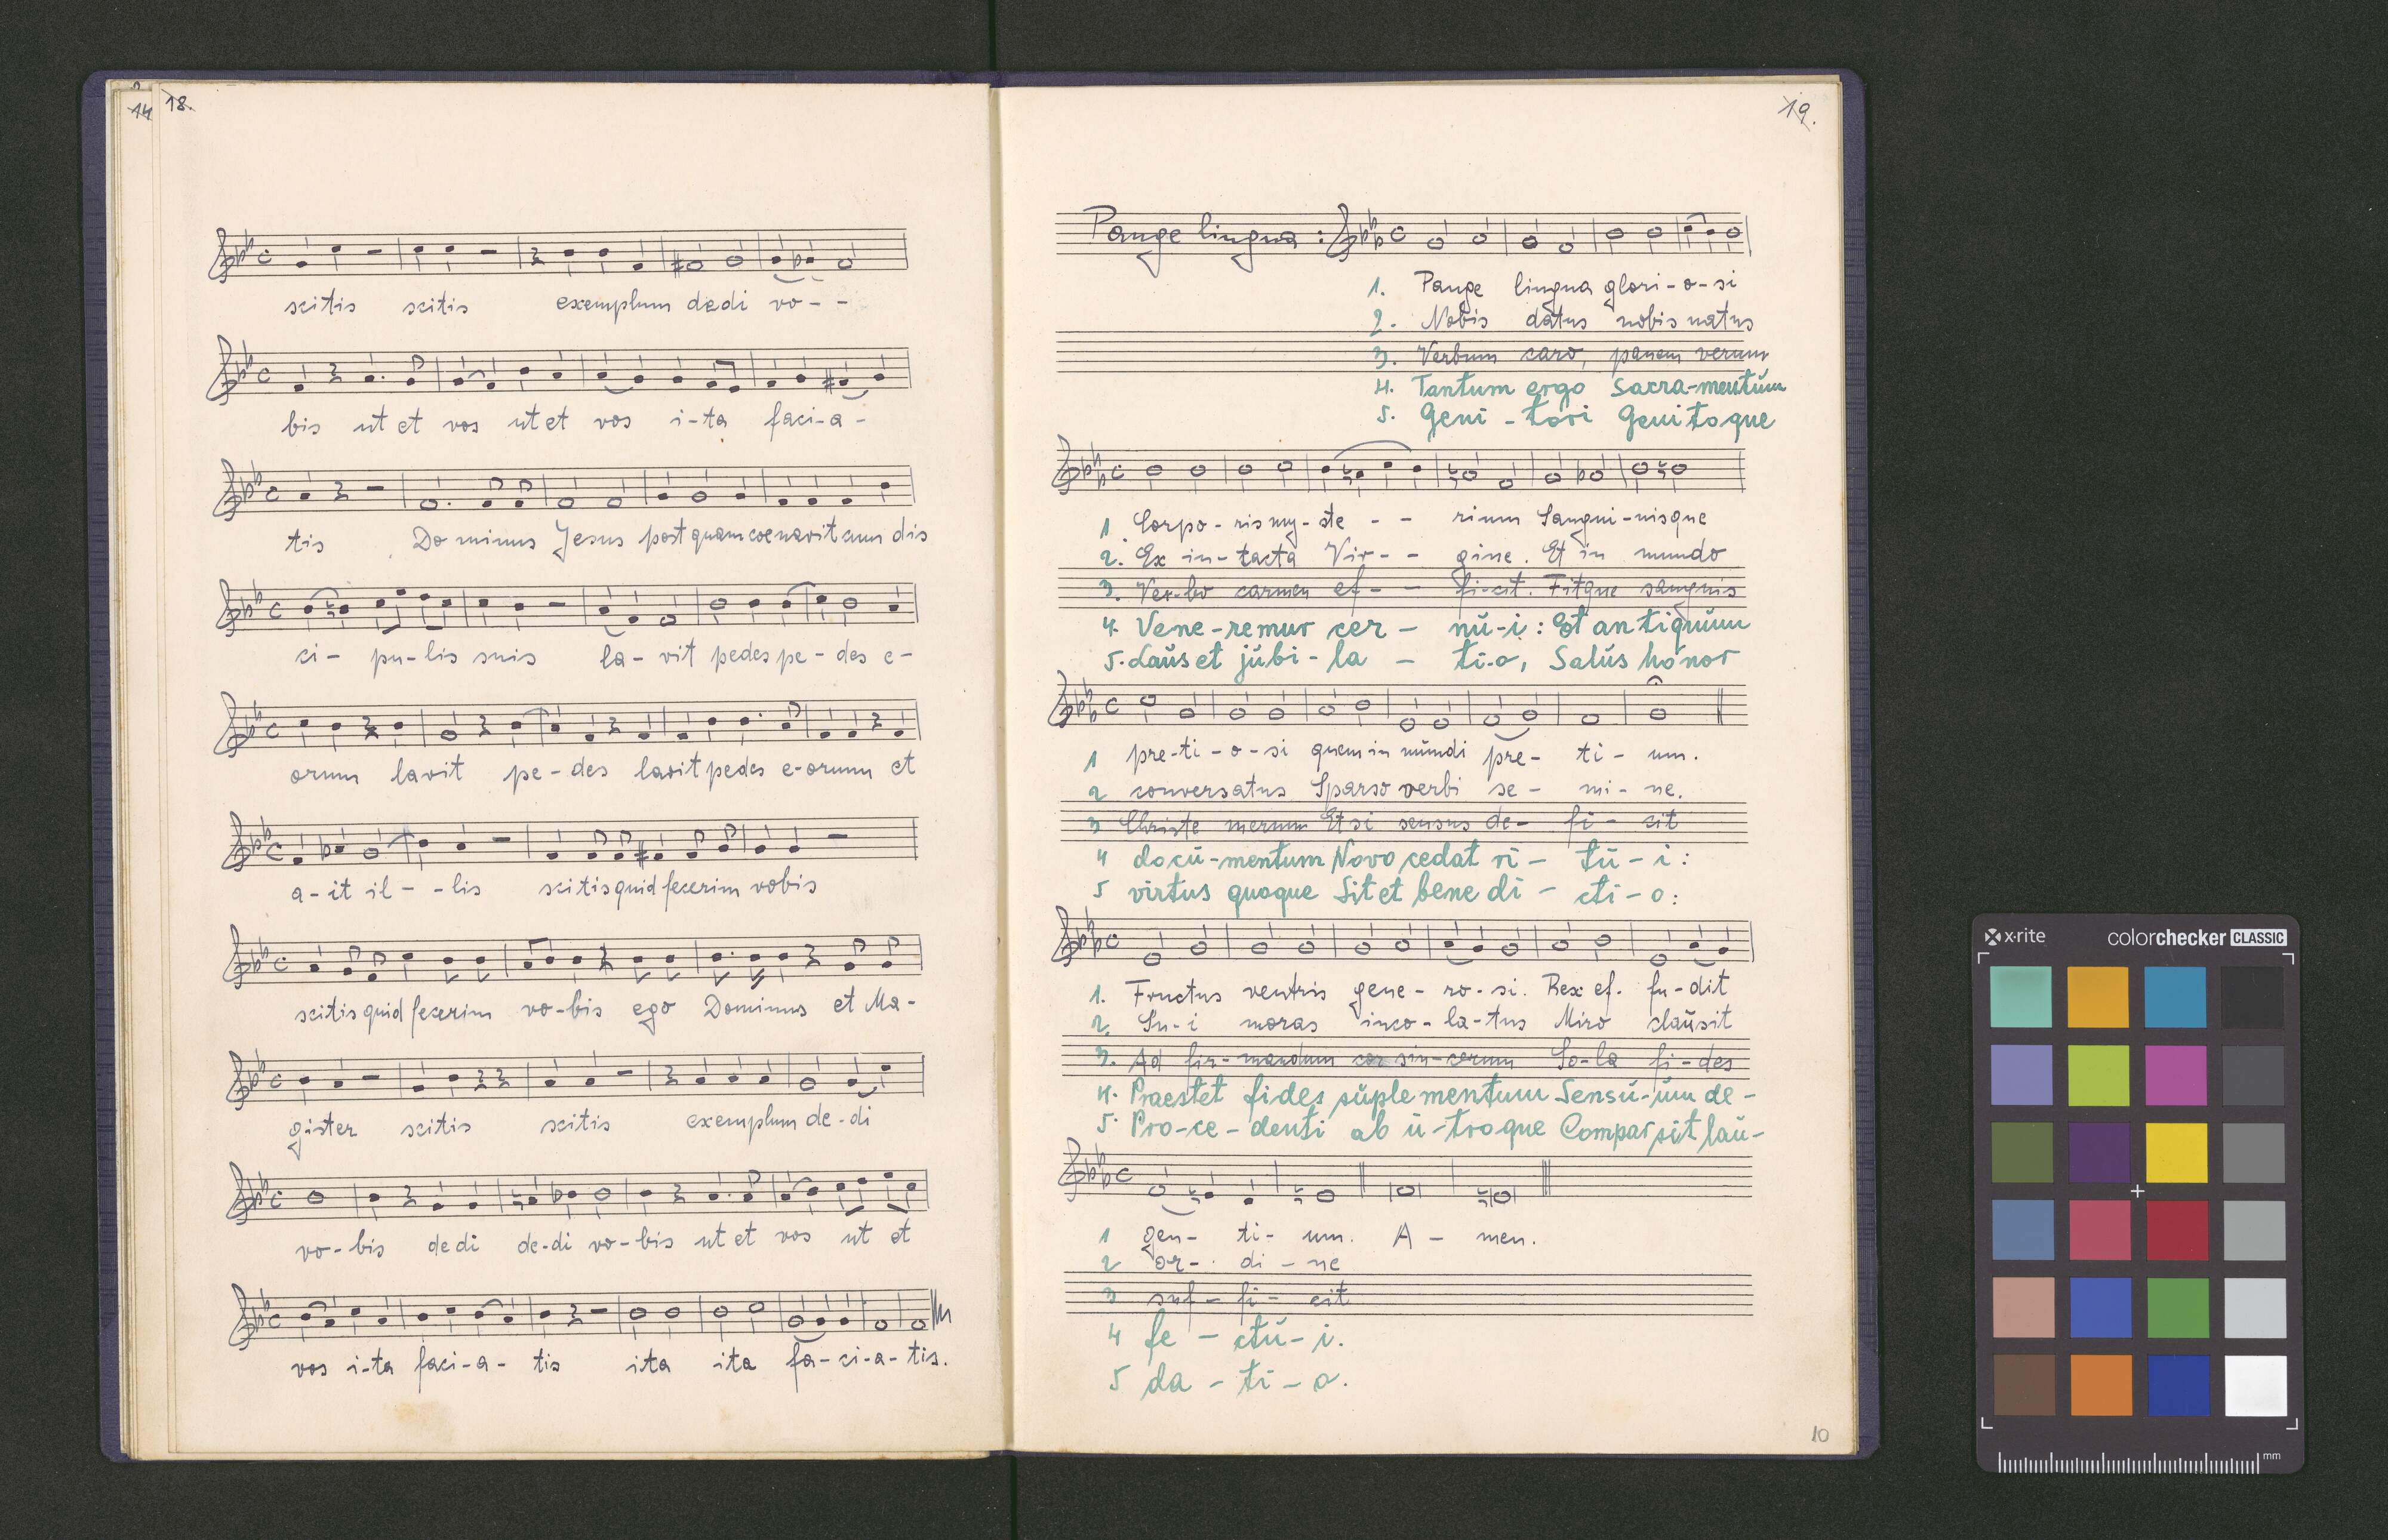 14
18.
scitis scitis exemplum dedi vo- -
bis ut et vos ut et vos i-ta faci-a-
tis Do minus Jesus post quam coenavit cum dis
ci- pu-lis suis la-vit pedes pe-des e-
orum lavit pe-des lavit pedes e-orum et
a-it il- -lis scitis quid fecerim vobis
scitis quid fecerim vo-bis ego Dominus et Ma-
gister scitis scitis exemplum de-di
vo-bis dedi de-di vo-bis ut et vos ut et
vos i-ta faci-a- tis ita ita fa-ci-a-tis.
19.
Pange lingua :
1. Pange lingua glori-o-si
2. Nobis datus nobis natus
3. Verbum caro, panem verum
4. Tantum ergo Sacra-mentŭm
5. Geni-tori Genitoque
1. Corpo-ris my-ste - - rium Sangui-nisque
2. Ex in-tacta Vir- - gine. Et in mundo
3. Ver-bo carmen ef- - fi-cit. Fitque sanguis
4. Vene-remur cer - nŭ-i: Et antiquŭm
5. Laŭs et jŭbi-la - ti-o, Salŭs honor
1 pre-ti-o-si quem in mŭndi pre- ti- um.
2 conversatus Sparso verbi se- mi- ne.
3 Christe merum Et si sensus de- fi- cit
4 docŭ-mentum Novo cedat ri- tŭ-i:
5 virtus quoque Sit et bene di- cti-o:
1. Fructus ventris gene-ro-si. Rex ef- fu-dit
2. Su-i moras inco-la-tus Miro claŭsit
3. Ad fir-mandum cor sin-cerum So-la fi-des
4. Praestet fides sŭplementum Sensŭ-ŭm de-
5. Pro-ce-denti ab ŭ-troque Compar sit laŭ-
1 gen- ti- um. A - men.
2 or- di-ne
3 suf- fi- cit
4 fe - ctŭ-i.
5 da - ti-o.
10
x·rite colorchecker CLASSIC
mm